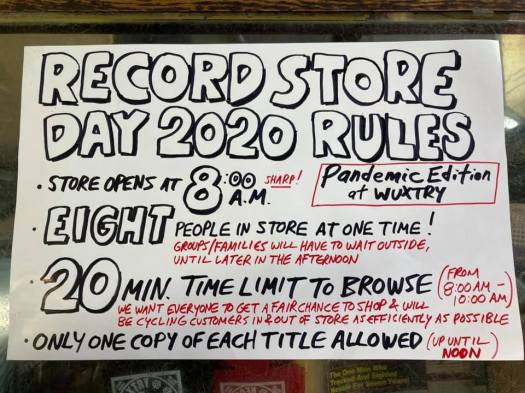 RECORD STORE
DAY 2020 RULES
Pandemic Edition
at WUXTRY
• STORE OPENS AT 8:00 A.M. SHARP!
• EIGHT PEOPLE IN STORE AT ONE TIME!
GROUPS/FAMILIES WILL HAVE TO WAIT OUTSIDE,
UNTIL LATER IN THE AFTERNOON
• 20 MIN. TIME LIMIT TO BROWSE (FROM 8:00 AM – 10:00 AM)
WE WANT EVERYONE TO GET A FAIR CHANCE TO SHOP & WILL
BE CYCLING CUSTOMERS IN & OUT OF STORE AS EFFICIENTLY AS POSSIBLE
• ONLY ONE COPY OF EACH TITLE ALLOWED (UP UNTIL NOON)
The One Man Who